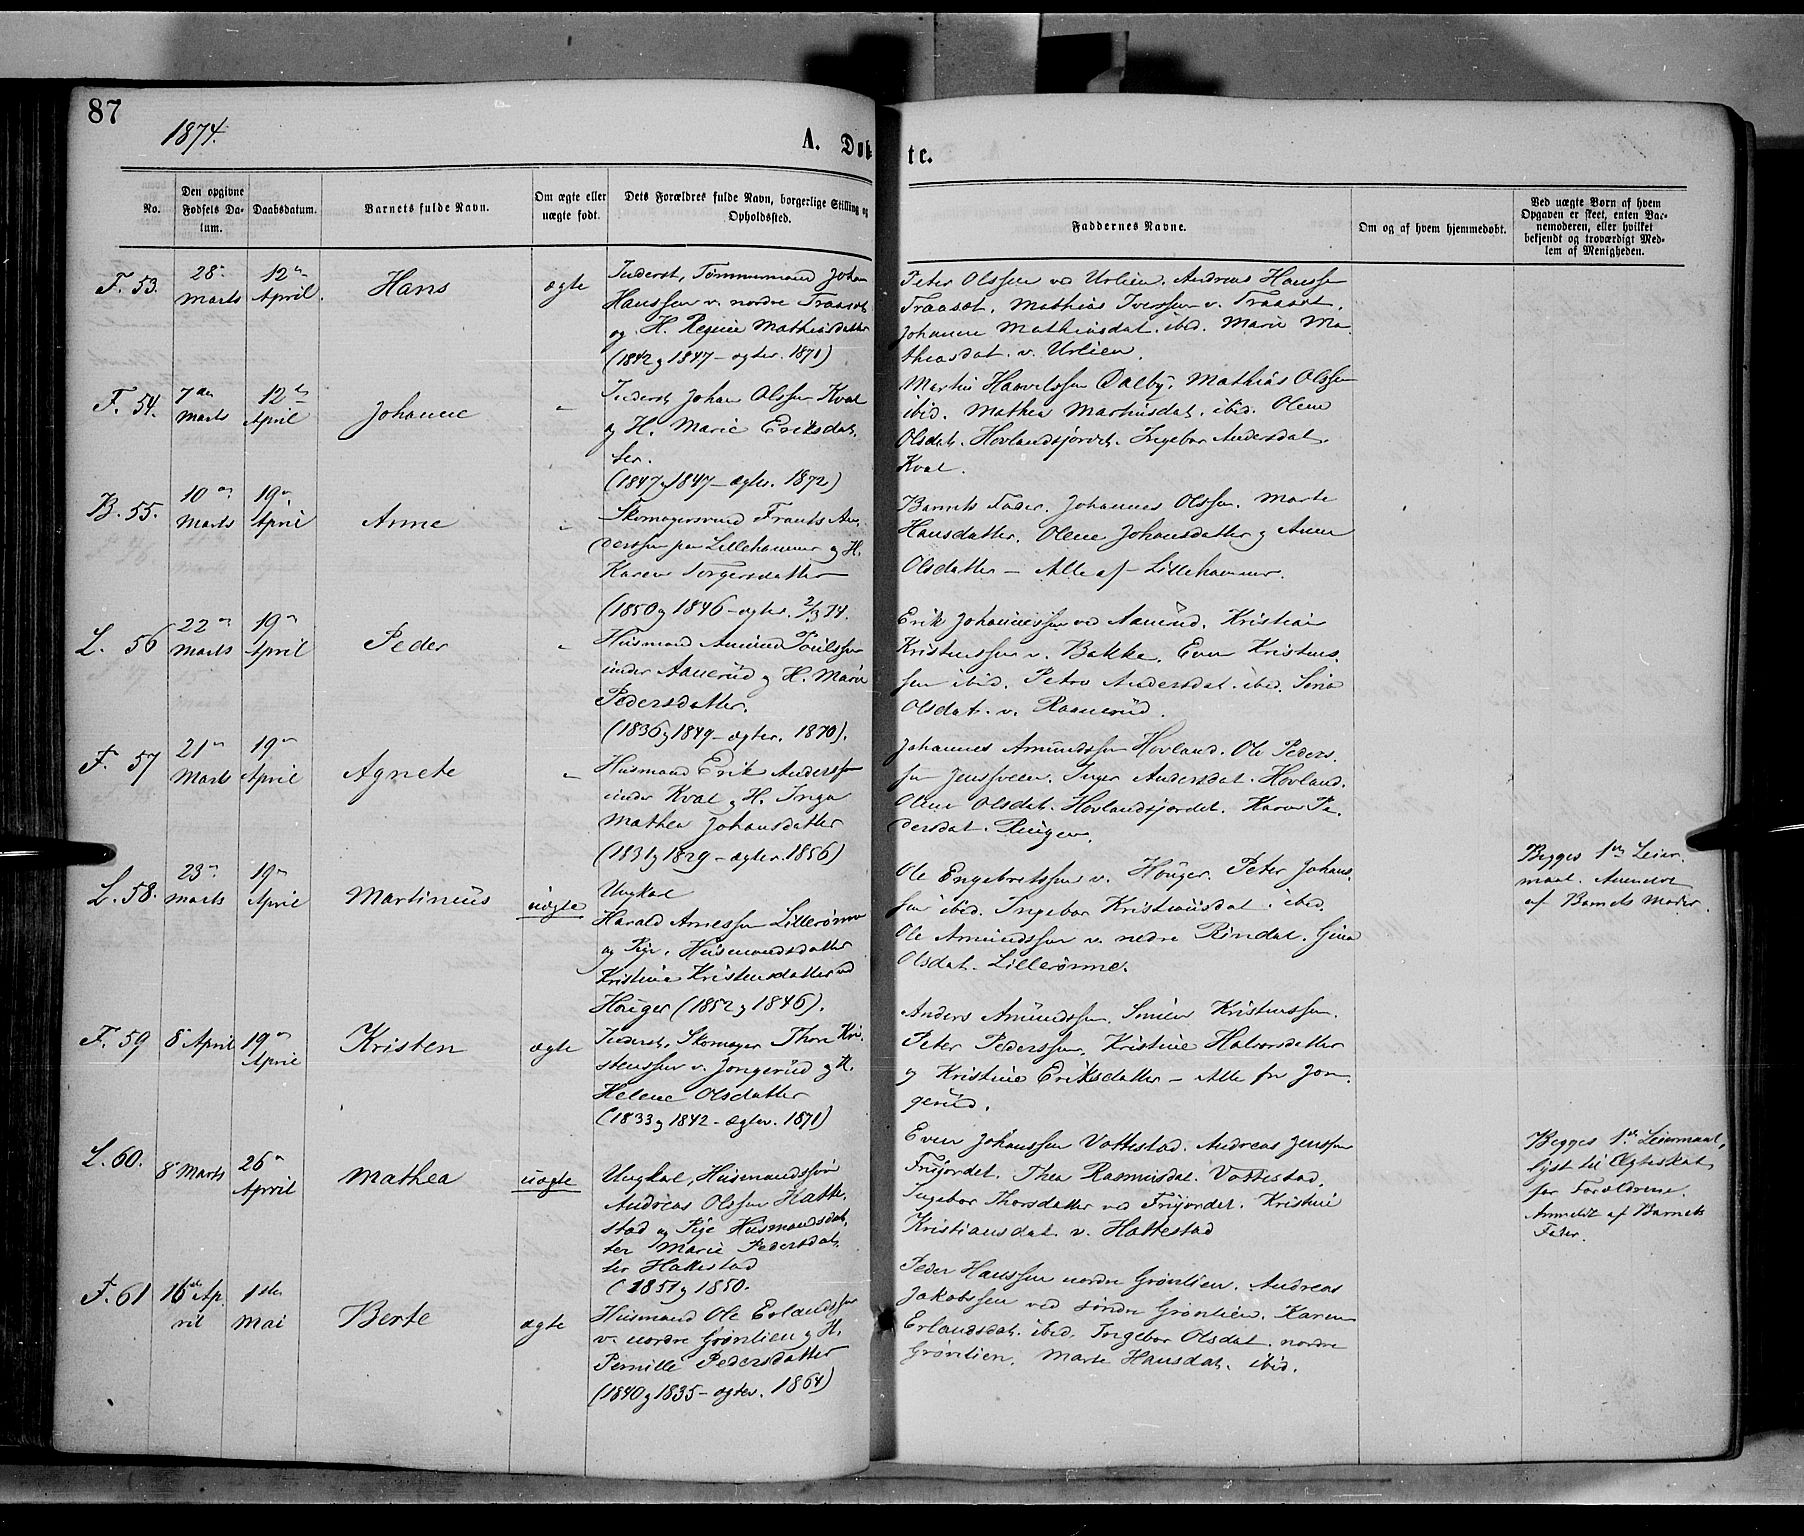 87
1874.
A. Døbte.
No.
Den opgivne Fødsels Datum.
Daabsdatum.
Barnets fulde Navn.
Om ægte eller uægte født.
Dets Forældres fulde Navn, borgerlige Stilling og Opholdssted.
Faddernes Navne.
Om og af hvem hjemmedøbt.
Ved uægte Børn af hvem Opgaven er skeet, enten Barnemoderen, eller hvilket bekjendt og troværdigt Medlem af Menigheden.
F. 53.
28de Marts
12te April.
Hans
ægte
Inderst, Tømmermand Johan
Hanssen v. nordre Traaset
og H. Regine Mathiasdatter
(1842 og 1847 – ægtev. 1871)
Peter Olssen ved Urlien. Andreas Hanssen
Traaset. Mathias Iverssen v. Traaset.
Johanne Mathiasdat. ibid. Marie Ma-
thiasdat. v. Urlien.
F. 54.
7de Marts
12te April
Johanne
"
Inderst Johan Olssen Kval
og H. Marie Eriksdat-
ter.
(1847 og 1847 – ægtev. 1872)
Martin Dalby. Mathias Olssen
ibid. Mathea Martinsdat. ibid. Olene
Olsdat. Hovlandsjordet. Ingebor Andersdat.
Kval.
B. 55.
10de Marts
19de April
Anne
"
Skomagersvend Frants An-
derssen paa Lillehammer og H.
Karen Torgersdatter
(1850 og 1846 – ægtev. 2/3 74.
Barnets Fader. Johannes Olssen. Marte
Hansdatter. Olene Johansdatter og Anne
Olsdatter – Alle af Lillehammer.
L. 56
22de Marts
19de April
Peder
"
Husmand Amund Poulssen
under Aanerud og H. Marie
Pedersdatter.
(1836 og 1849 – ægtev. 1870).
Erik Johannessen ved Aanerud. Kristian
Kristenssen v. Bakke. Even Kristens-
sen ibid. Petra Andersdat. ibid. Sina
Olsdat. v. Raanerud.
F. 57
21de Marts
19de April
Agnete
"
Husmand Erik Anderssen
under Kval og H. Inga
Mathea Johansdatter
(1831 og 1829 – ægtev. 1856)
Johannes Amundssen Hovland. Ole Peders-
sen Jensveen. Inger Andersdat. Hovland.
Oline Olsdat. Hovlandsjordet. Karen Pe-
dersdat. Ringen.
L. 58.
23de Marts
19de April
Martinius
uægte
Ungkal
Harald Arnessen Lillerønne
og Pige, Husmandsdatter
Kristine Kristensdatter ved
Houger (1852 og 1846).
Ole Engebretssen v. Houger. Peter Johans-
sen ibid. Ingebor Kristiansdat. ibid.
Ole Amundssen v. nedre Rindal. Gina
Olsdat. Lillerønne.
Begges 1ste Leier-
maal. Anmeldt
af Barnets Moder.
F. 59
8de April
19de April
Kristen
ægte
Inderst, Skomager Thor Kri-
stenssen v. Jongerud og H.
Helene Olsdatter
(1833 og 1842 – ægtev. 1871)
Anders Amundssen. Simen Kristenssen.
Peter Pederssen. Kristine Halvorsdatter
og Kristine Eriksdatter – Alle fra Jon-
gerud.
L. 60.
8de Marts
26de April
Mathea
uægte
Ungkal, Husmandssøn
Andreas Olssen Hatte-
stad og Pige Husmandsdat-
ter Marie Pedersdat-
ter Hattestad
(1851 og 1850.
Even Johanssen Vottestad. Andreas Jenssen
Frijordet. Thea Rasmusdat. Vottestad.
Ingebor Thorsdatter ved Frijordet. Kristine
Kristiansdat. v. Hattestad
Begges 1ste Leiermaal,
lyst til Ægteskab
for Forældrene.
Anmeldt af Barnets
Fader.
F. 61
16de April
1ste Mai
Berte
ægte
Husmand Ole Erlandssen
v. nordre Grønlien og H.
Pernille Pedersdatter
(1840 og 1835 – ægtev. 1864)
Peder Hanssen nordre Grønlien. Andreas
Jakobssen ved søndre Grønlien. Karen
Erlandsdat. ibid. Ingebor Olsdat. nordre
Grønlien. Marte Hansdat. ibid.